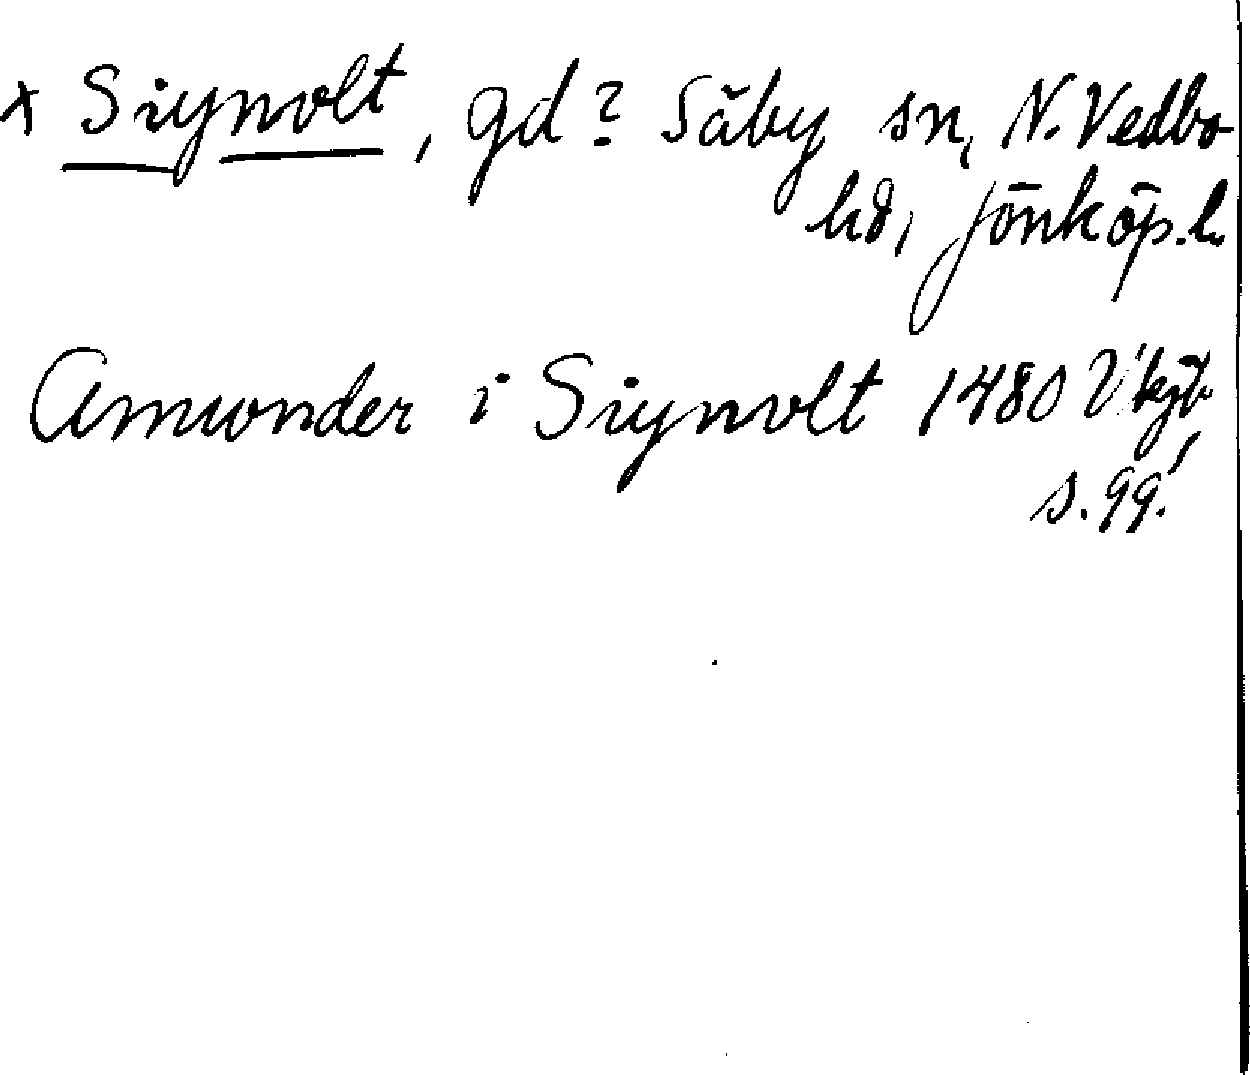 x Siynvolt, gd? Säby sn, N. Vedbo
hd, Jönköp. l.
Amunder i Siynvolt 1480 Vikjb
s. 99.